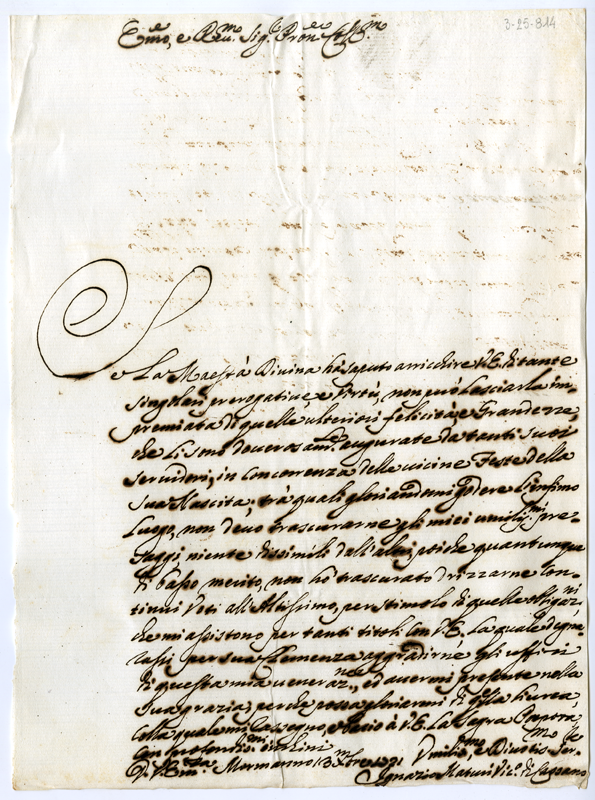 3-25-814
Em.o, e Rev.mo Sig.e Pron.e Coll.mo
Se La Maestà Divina ha saputo arricchire V.E. di tante
singolari prerogative, e Virtù, non può lasciarla im-
premiata di quelle ulteriori felicità, e Grandezze
che Li sono doverosam.te augurate da tanti suoi
servidori, in concorrenza delle vicine Feste della
sua Nascita, trà quali gloriandomi godere L'infimo
Luogo, non devo trascurarne gli miei umiliss.mi pre-
saggi, niente dissimili dall'altri, che quantunque
di basso merito, non hò trascurato drizzarne con-
tinui Voti all'Altissimo, per stimolo di quelle obligaz.ni
che mi assistono per tanti titoli con V.E. La quale degna-
rassi per sua Clemenza aggradirne gli uffici
di questa mia veneraz.ne, ed avermi presente nella
sua grazia; perche possa gloriarmi di q.lla livrea,
colla quale mi rassegno, e bacio à V.E. La Sagra Porpora,
con profondiss.mi inchini
D. V. Em.za Mormanno 13 Xbre 1721 Umilis.mo, e Divotis.mo Ser.e
Ignazio Maturi Vic.o di Cassano